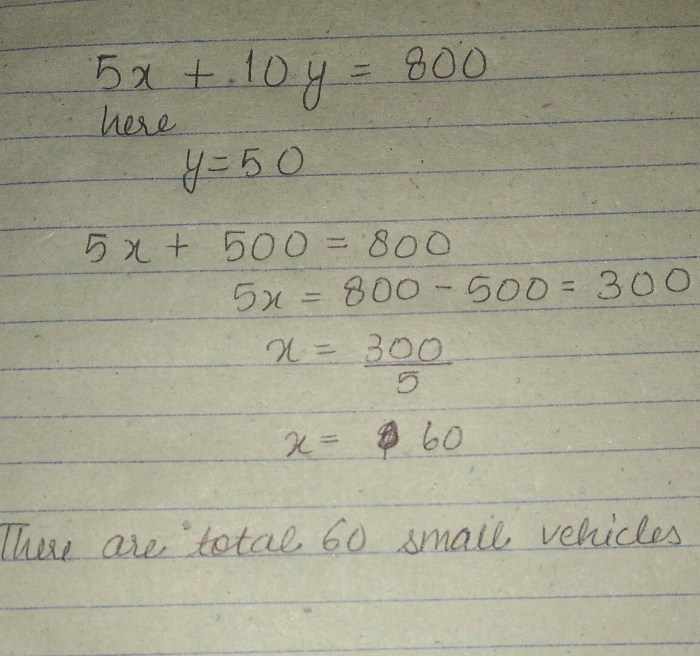 5x + 10y = 800
here
y=50
5x + 500 = 800
5x = 800 - 500 = 300
x = 300/5
x = 60
There are total 60 small vehicles